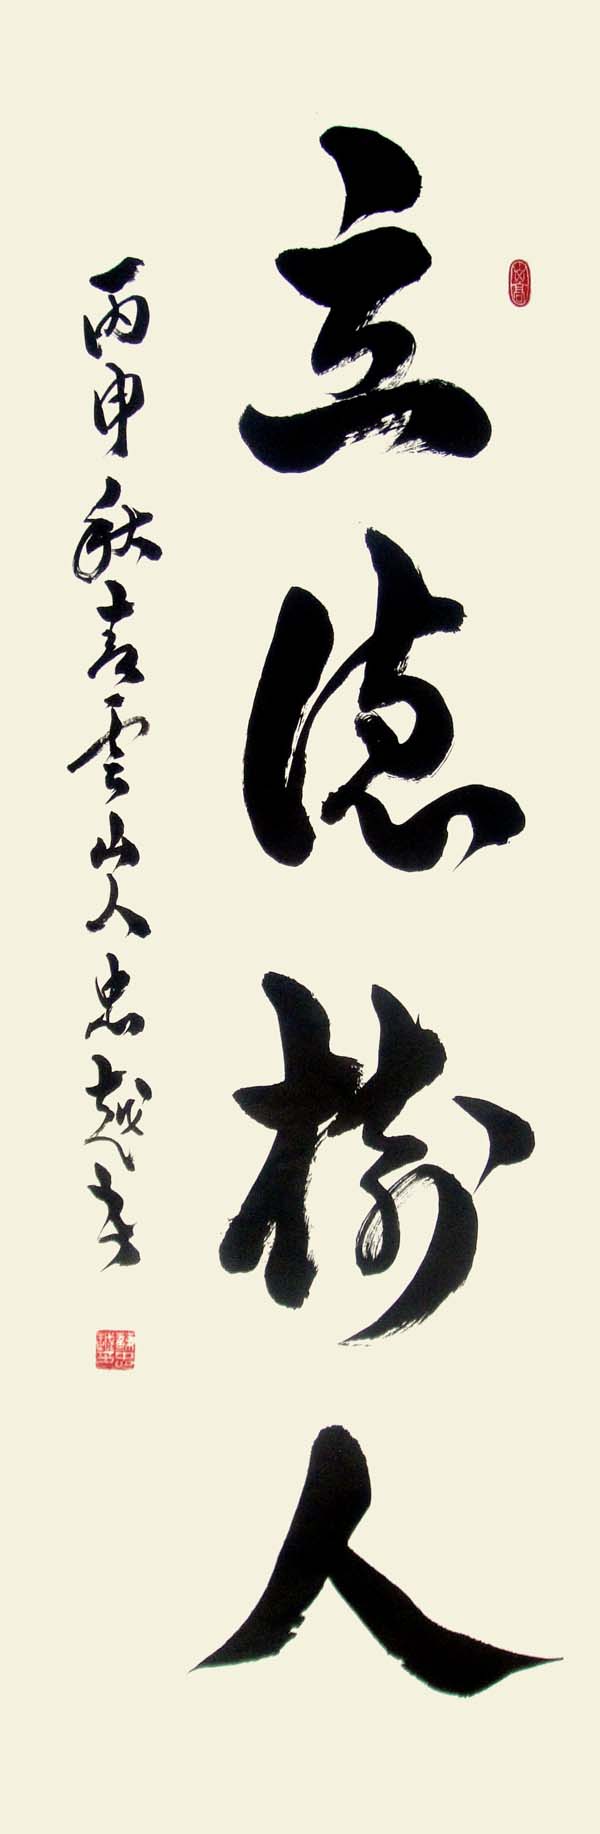 立德樹人
丙申秋青雲山人忠越書